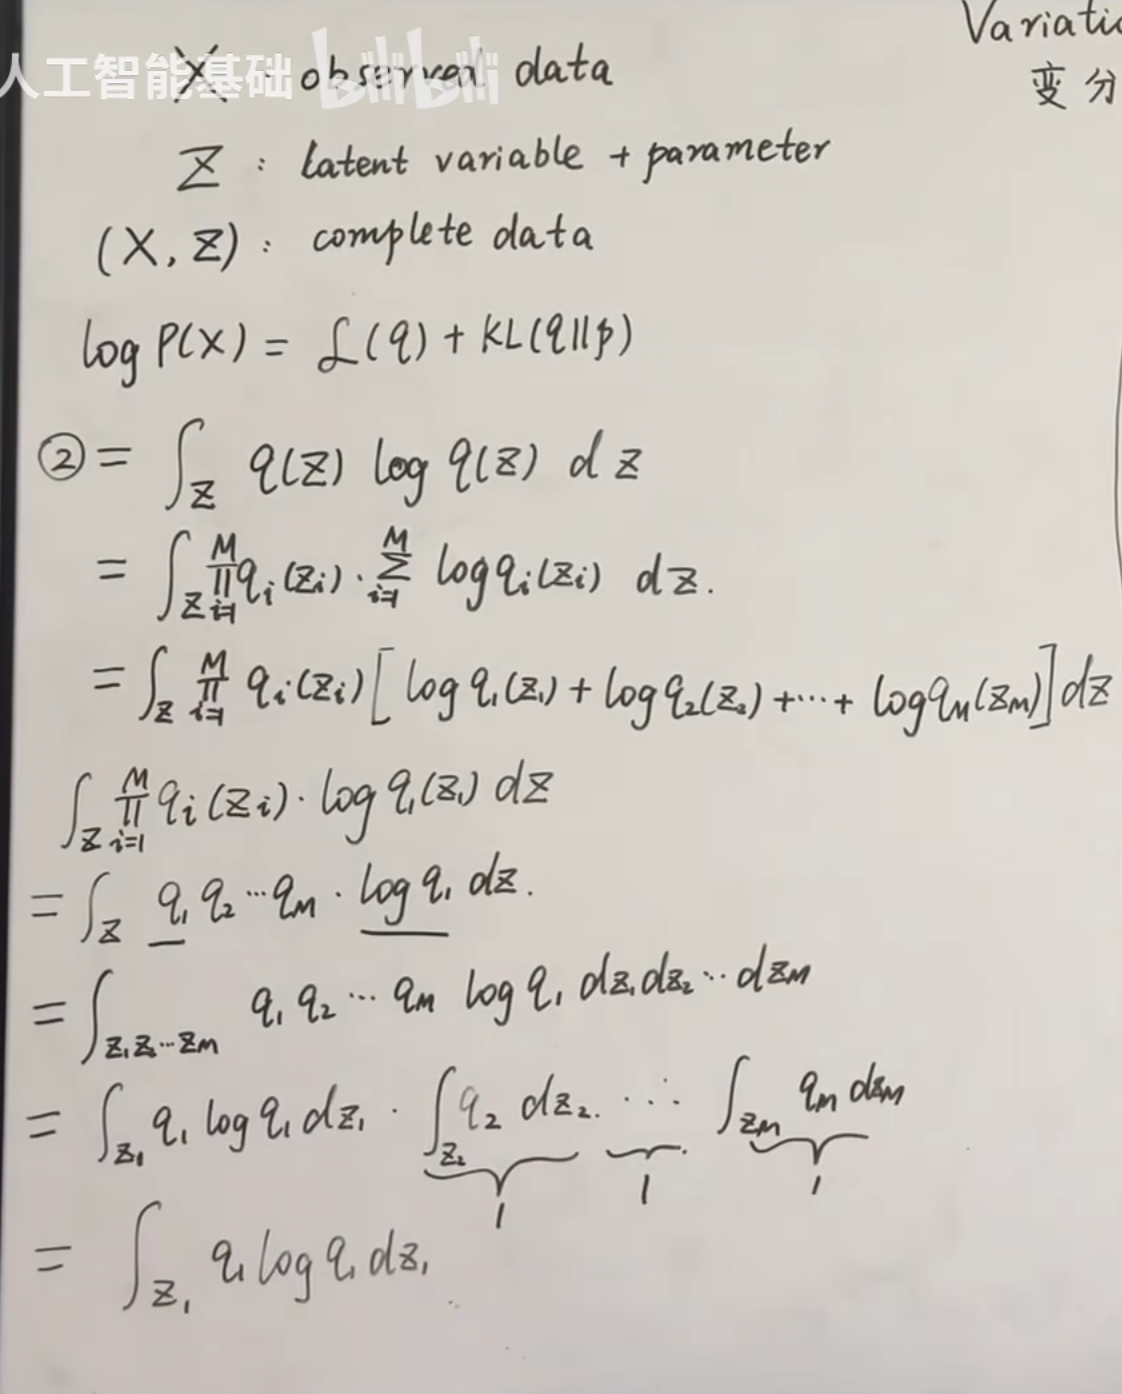 Variatio
变分
人工智能基础 bilibili
X : observed data
Z : latent variable + parameter
(X, Z) : complete data
log P(X) = ℒ(q) + KL(q||p)
② = ∫_Z q(Z) log q(Z) dZ
= ∫_Z ∏_{i=1}^{M} q_i(z_i) · ∑_{i=1}^{M} log q_i(z_i) dZ.
= ∫_Z ∏_{i=1}^{M} q_i(z_i) [log q_1(z_1) + log q_2(z_2) + ··· + log q_M(z_M)] dZ
∫_Z ∏_{i=1}^{M} q_i(z_i) · log q_1(z_1) dZ
= ∫_Z q_1 q_2 ··· q_M · log q_1 dZ.
= ∫_{z_1 z_2 ··· z_M} q_1 q_2 ··· q_M log q_1 dz_1 dz_2 ··· dz_M
= ∫_{z_1} q_1 log q_1 dz_1 · ∫_{z_2} q_2 dz_2. ··· ∫_{z_M} q_M dz_M
1 1 1
= ∫_{z_1} q_1 log q_1 dz_1